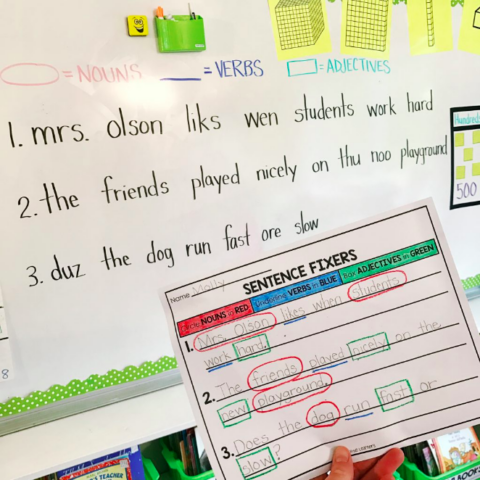 = NOUNS = VERBS = ADJECTIVES
1. mrs. olson liks wen students work hard
2. the friends played nicely on thu noo playground
3. duz the dog run fast ore slow
Hundreds
500
Name Molly
SENTENCE FIXERS
Circle NOUNS in RED Underline VERBS in BLUE Box ADJECTIVES in GREEN
1. Mrs. Olson likes when students
work hard.
2. The friends played nicely on the
new playground.
3. Does the dog run fast or
slow?
8